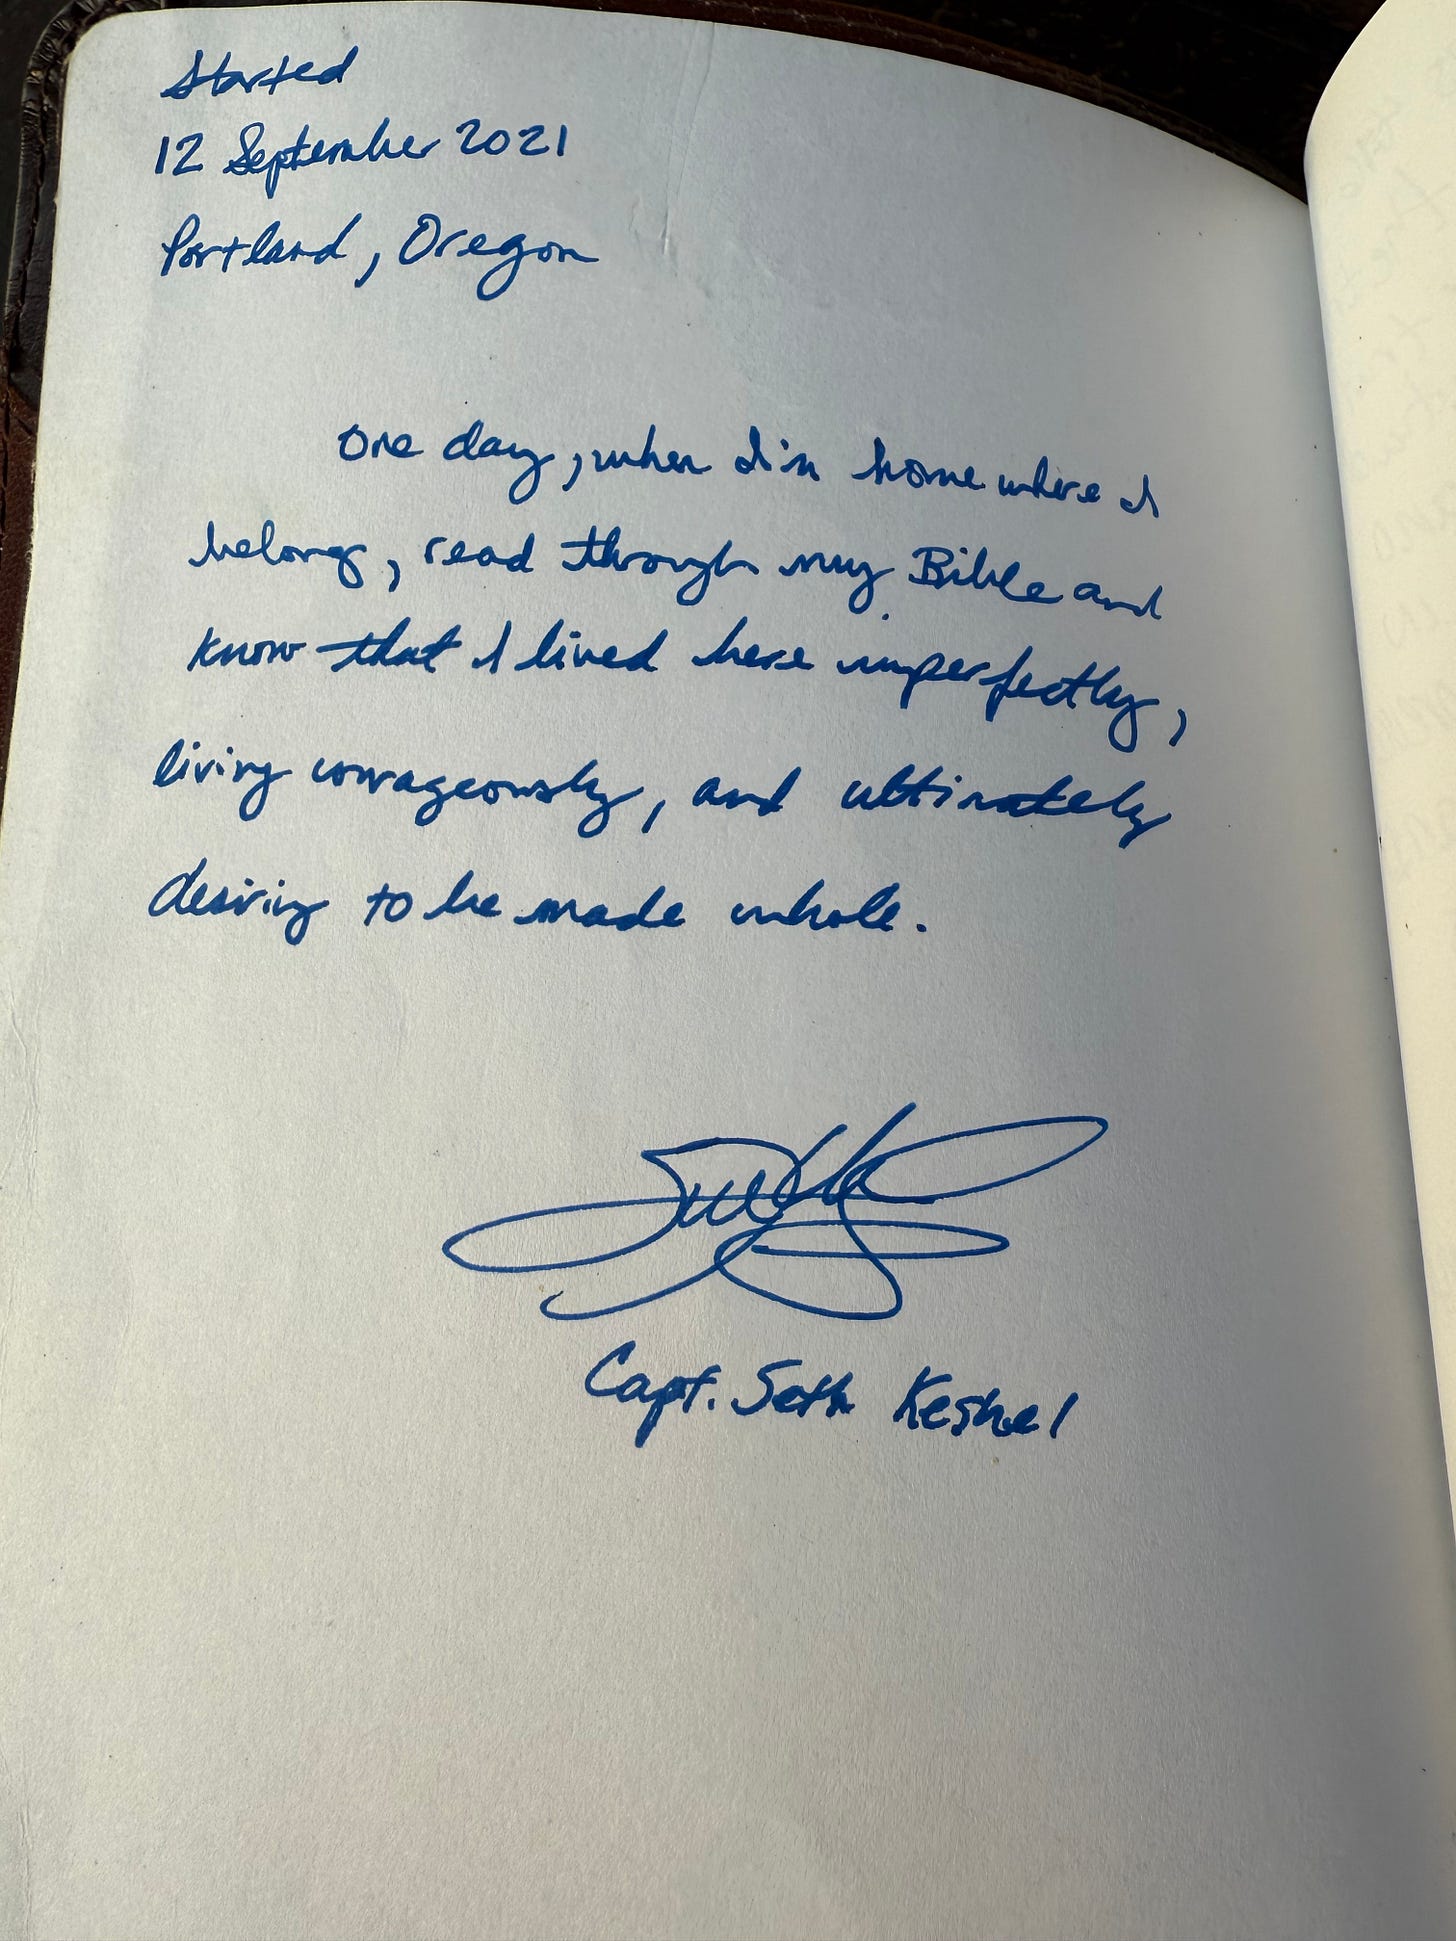 Started
12 September 2021
Portland, Oregon
One day, when I'm home where I
belong, read through my Bible and
know that I lived here imperfectly,
living courageously, and ultimately
desiring to be made whole.
Capt. Seth Keshel